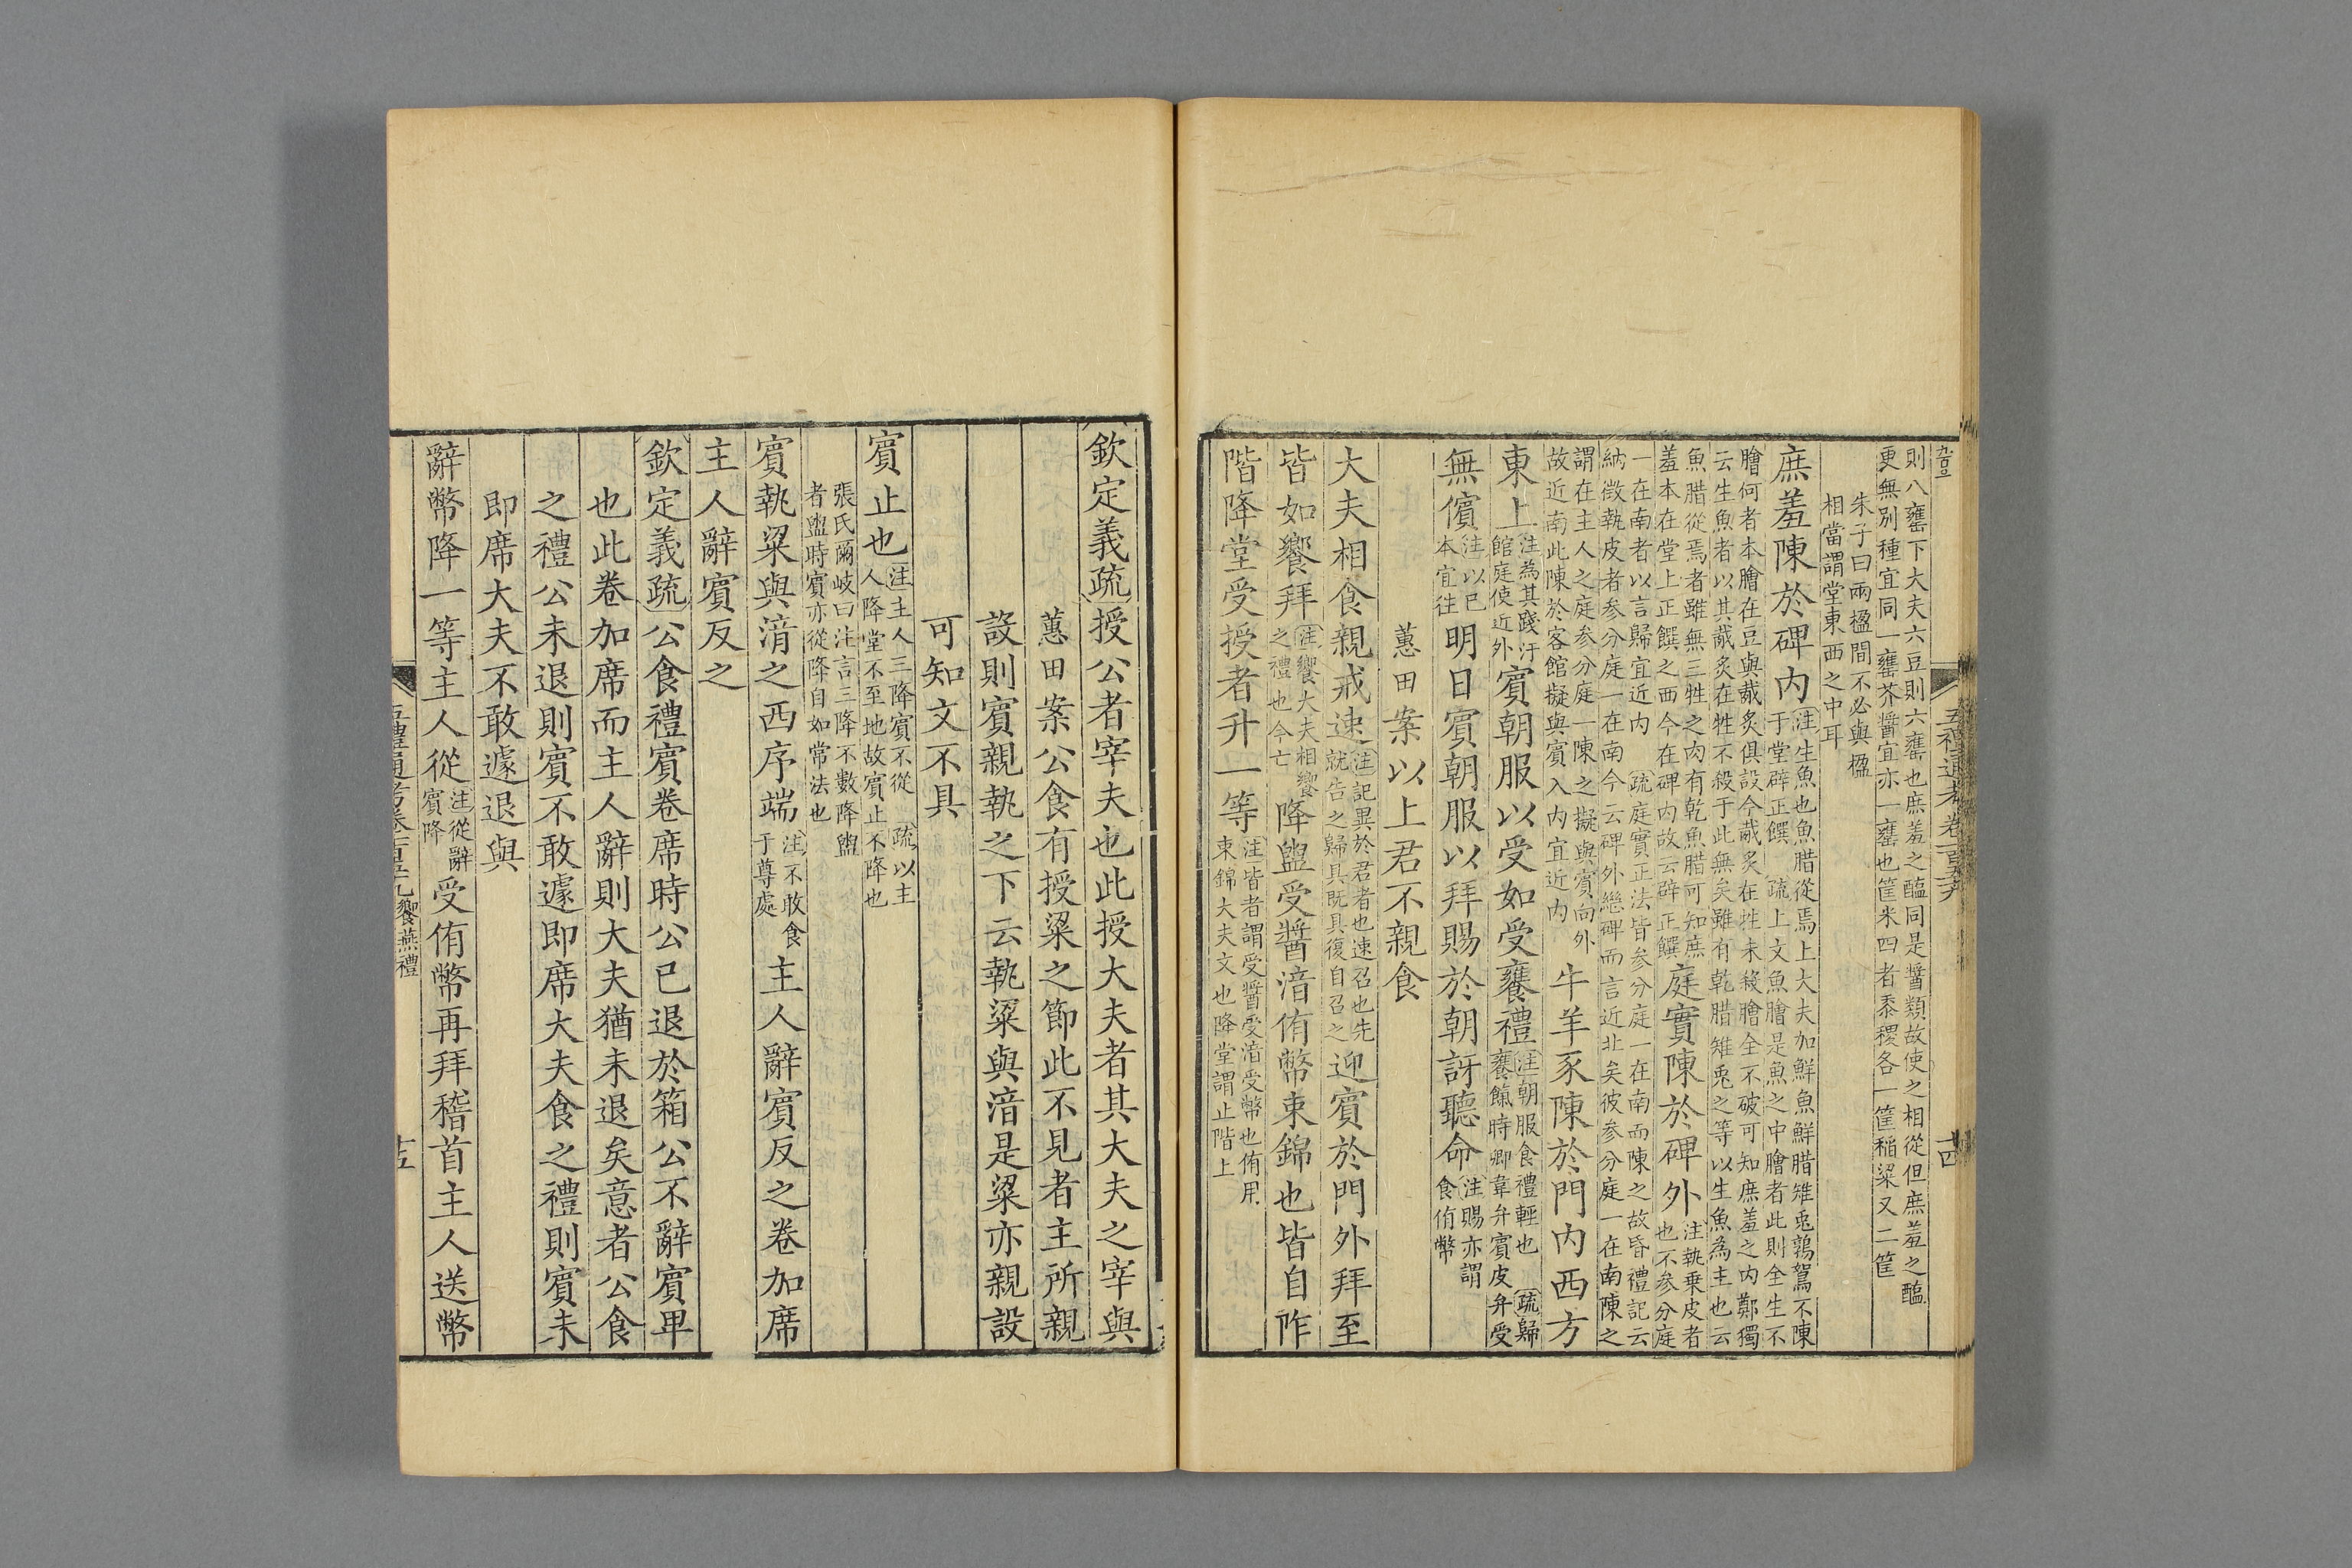 五禮通考卷一百五十九
十四
則八罋下大夫六豆則六罋也庶羞之醢同是醬類故使之相從但庶羞之醢
更無別種宜同一罋芥醬宜亦一罋也筐米四者黍稷各一筐稻粱又二筐
朱子曰兩楹間不必與楹
相當謂堂東西之中耳
庶羞陳於碑内注生魚也魚腊從焉上大夫加鮮魚鮮腊雉兎鶉鴽不陳
于堂辟正饌 疏上文魚膾是魚之中膾者此則全生不
膾何者本膾在豆與胾炙俱設今胾炙在牲未殺膾全不破可知庶羞之内鄭獨
云生魚者以其胾炙在牲不殺于此無矣雖有乾腊雉兎之等以生魚為主也云
魚腊從焉者雖無三牲之肉有乾魚腊可知庶
羞本在堂上正饌之西今在碑内故云辟正饌庭實陳於碑外注執乗皮者
也不参分庭
一在南者以言歸宜近内 疏庭實正法皆参分庭一在南而陳之故昏禮記云
納徴執皮者参分庭一在南今云碑外繼碑而言近北矣彼参分庭一在南陳之
謂在主人之庭参分庭一陳之擬與賓向外
故近南此陳於客館擬與賓入内宜近内牛羊豕陳於門内西方
東上注為其踐汙
館庭使近外賓朝服以受如受饔禮注朝服食禮輕也 疏歸
饔餼時卿韋弁賓皮弁受
無儐注以已
本宜往明日賓朝服以拜賜於朝訝聽命注賜亦謂
食侑幣
蕙田案以上君不親食
大夫相食親戒速注記異於君者也速召也先
就告之歸具既具復自召之迎賓於門外拜至
皆如饗拜注饗大夫相饗
之禮也今亡降盥受醬湆侑幣束錦也皆自阼
階降堂受授者升一等注皆者謂受醬受湆受幣也侑用
束錦大夫文也降堂謂止階上
欽定義疏授公者宰夫也此授大夫者其大夫之宰與
蕙田案公食有授粱之節此不見者主所親
設則賓親執之下云執粱與湆是粱亦親設
可知文不具
賓止也注主人三降賓不從 疏以主
人降堂不至地故賓止不降也
張氏爾岐曰注言三降不數降盥
者盥時賓亦從降自如常法也
賓執粱與湆之西序端注不敢食
于尊處主人辭賓反之卷加席
主人辭賓反之
欽定義疏公食禮賓卷席時公已退於箱公不辭賓卑
也此卷加席而主人辭則大夫猶未退矣意者公食
之禮公未退則賓不敢遽即席大夫食之禮則賓未
即席大夫不敢遽退與
辭幣降一等主人從注從辭
賓降受侑幣再拜稽首主人送幣
五禮通考卷一百五十九饗燕禮
十五